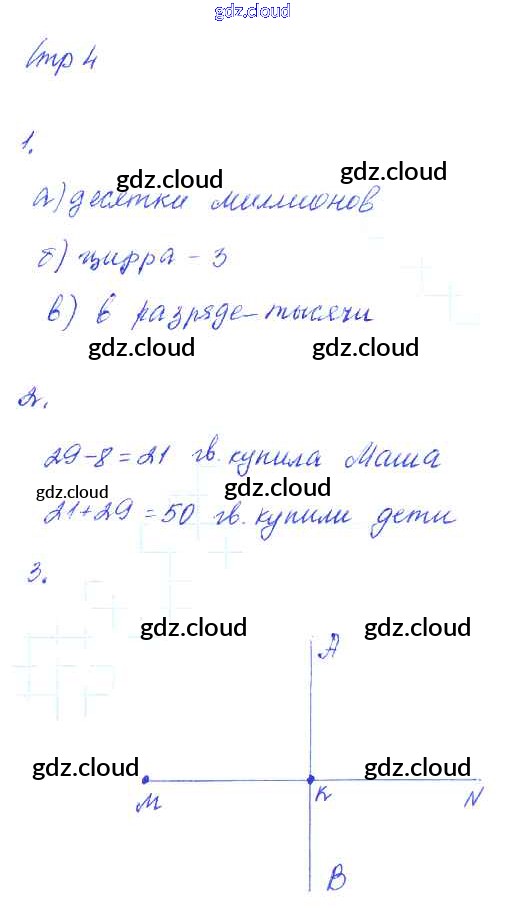 gdz.cloud
Стр 4
1.
gdz.cloud gdz.cloud
а) десятки миллионов
б) цифра - 3
в) в разряде - тысячи
gdz.cloud gdz.cloud
2.
29-8=21 гв. купила Маша
gdz.cloud gdz.cloud
21+29=50 гв. купили дети
3.
gdz.cloud gdz.cloud
A
gdz.cloud gdz.cloud
M K N
B